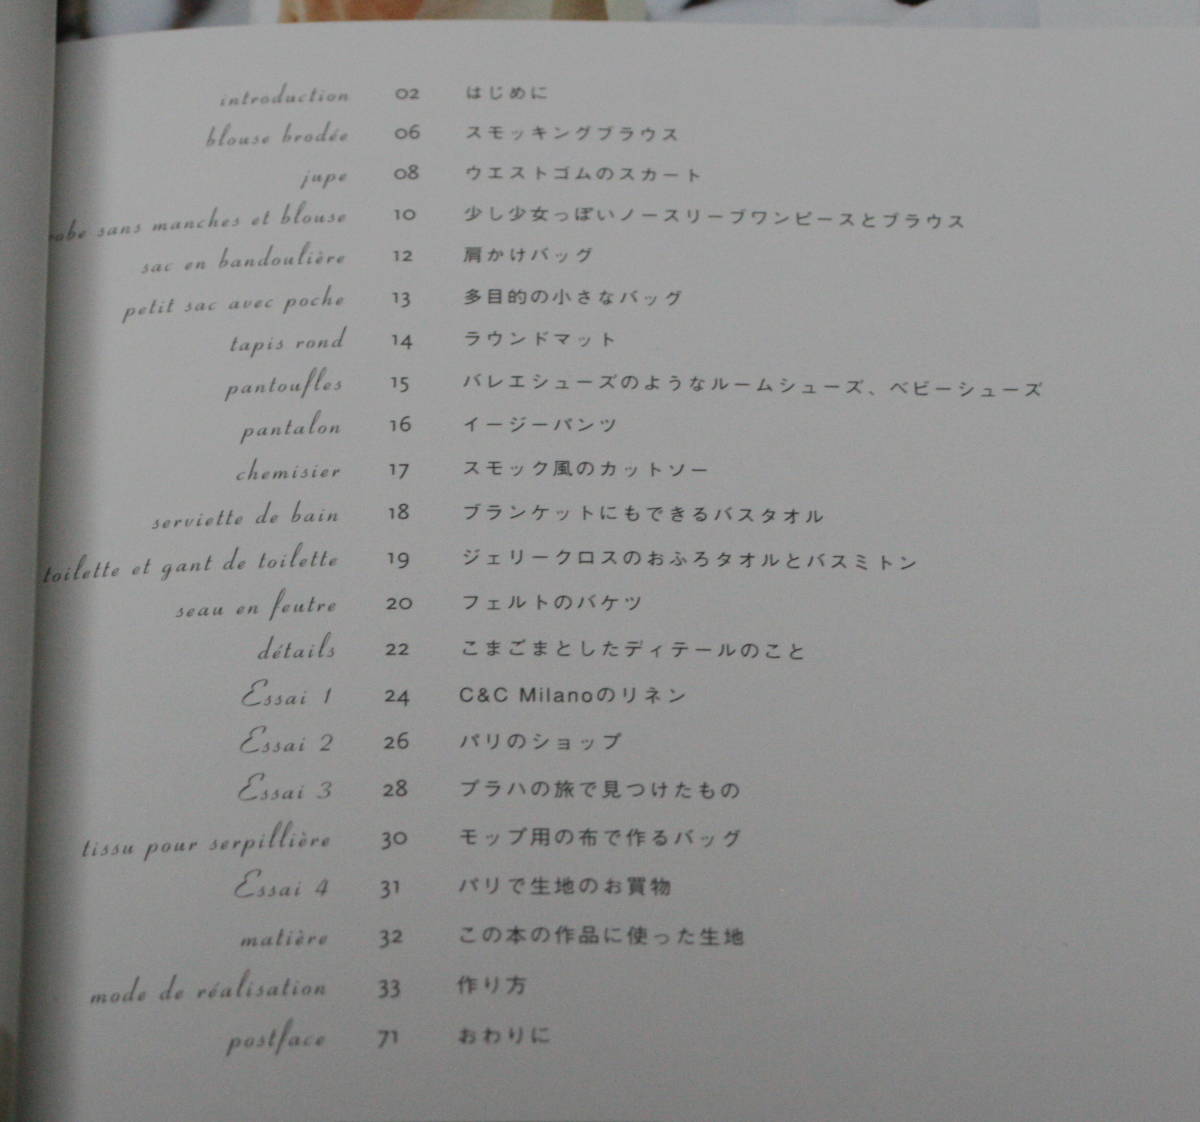 introduction 02 はじめに
blouse brodée 06 スモッキングブラウス
jupe 08 ウエストゴムのスカート
sans manches et blouse 10 少し少女っぽいノースリーブワンピースとブラウス
sac en bandoulière 12 肩かけバッグ
petit sac avec poche 13 多目的の小さなバッグ
tapis rond 14 ラウンドマット
pantoufles 15 バレエシューズのようなルームシューズ、ベビーシューズ
pantalon 16 イージーパンツ
chemisier 17 スモック風のカットソー
serviette de bain 18 ブランケットにもできるバスタオル
toilette et gant de toilette 19 ジェリークロスのおふろタオルとバスミトン
seau en feutre 20 フェルトのバケツ
détails 22 こまごまとしたディテールのこと
Essai 1 24 C&C Milanoのリネン
Essai 2 26 パリのショップ
Essai 3 28 プラハの旅で見つけたもの
tissu pour serpillière 30 モップ用の布で作るバッグ
Essai 4 31 パリで生地のお買物
matière 32 この本の作品に使った生地
mode de réalisation 33 作り方
postface 71 おわりに